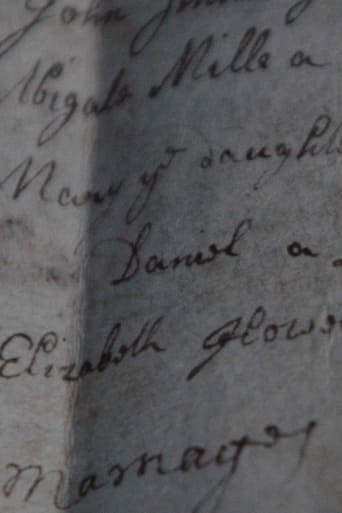 John
Abigale Mills a
Mary yᵉ daught
Daniel a
Elizabeth Flowe
Marriages